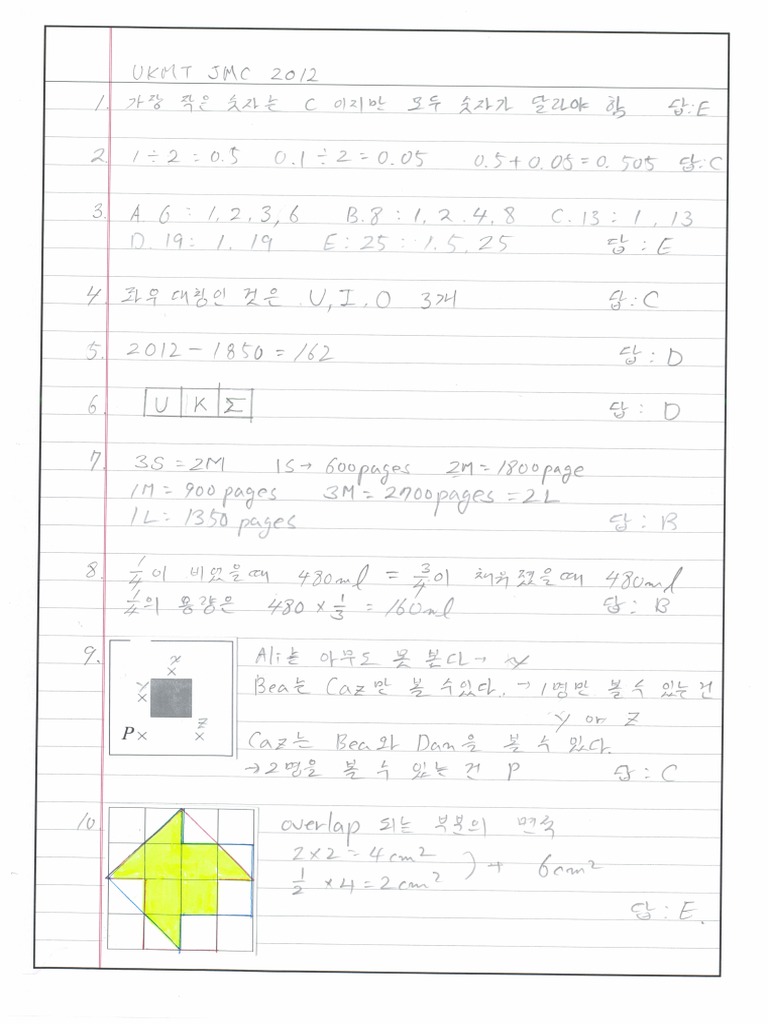 UKMT JMC 2012
1. 가장 작은 숫자는 C 이지만 모두 숫자가 달라야 함 답:E
2. 1÷2=0.5 0.1÷2=0.05 0.5+0.05=0.505 답:C
3. A.6 : 1,2,3,6 B.8 : 1,2.4,8 C.13 : 1, 13
D.19: 1.19 E:25 : 1.5,25 답:E
4. 좌우 대칭인 것은 U,I.O 3개 답:C
5. 2012-1850=162 답:D
6. U K Σ 답: D
7. 3S=2M 1S→600pages 2M=1800page
1M=900pages 3M=2700pages=2L
1L=1350pages 답:B
8. 1/4이 비었을때 480ml = 3/4이 채워졌을때 480ml
1/4의 용량은 480×1/3=160ml 답:B
9. Ali는 아무도 못 본다→ x
x
Bea는 Caz만 볼 수있다.→1명만 볼 수 있는건
y
y or z
z
P
Caz는 Bea와 Dan을 볼 수 있다.
→2명을 볼 수 있는 건 P 답:C
10. overlap 되는 부분의 면적
2×2=4cm²
) + 6cm²
1/2×4=2cm²
답:E.